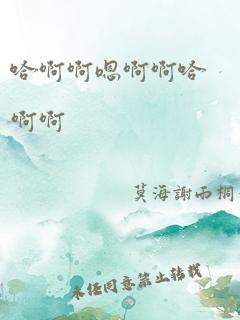 哈啊啊嗯啊啊哈
啊啊
莫海謝而桐
未经同意禁止转载